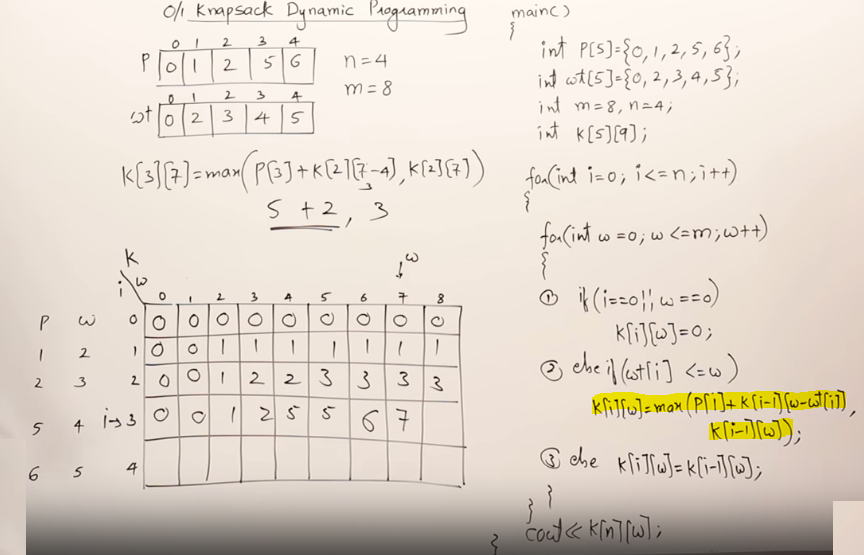 0/1 Knapsack Dynamic Programming
0 1 2 3 4
P 0 1 2 5 6
n=4
0 1 2 3 4
wt 0 2 3 4 5
m=8
K[3][7]=max(P[3]+K[2][7-4], K[2][7])
3
5 + 2, 3
K
i w
w
0 1 2 3 4 5 6 7 8
P w 0 0 0 0 0 0 0 0 0 0
1 2 1 0 0 1 1 1 1 1 1 1
2 3 2 0 0 1 2 2 3 3 3 3
5 4 i→3 0 0 1 2 5 5 6 7
6 5 4
main()
{
int P[5]={0,1,2,5,6};
int wt[5]={0,2,3,4,5};
int m=8, n=4;
int K[5][9];
for(int i=0; i<=n; i++)
{
for(int w=0; w<=m; w++)
{
① if(i==0 || w==0)
K[i][w]=0;
② else if(wt[i] <=w)
K[i][w]=max(P[i]+K[i-1][w-wt[i]],
K[i-1][w]);
③ else K[i][w]=K[i-1][w];
}
}
cout<< K[n][w];
}